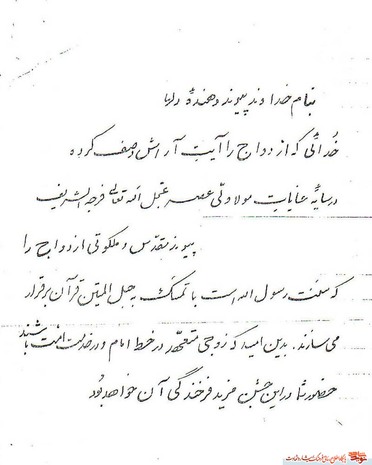 بنام خداوند پیوند دهندهٔ دلها
خدائی که ازدواج را آیت آرامش وصف کرده
در سایهٔ عنایات مولا ولی عصر عجل الله تعالی فرجه الشریف
پیوند مقدس و ملکوتی ازدواج را
که سنت رسول الله است با تمسک به حبل المتین قرآن برقرار
می‌سازند. بدین امید که زوجی متعهد در خط امام و در خدمت امت باشند
حضور شما در این جشن مزید فرخندگی آن خواهد بود